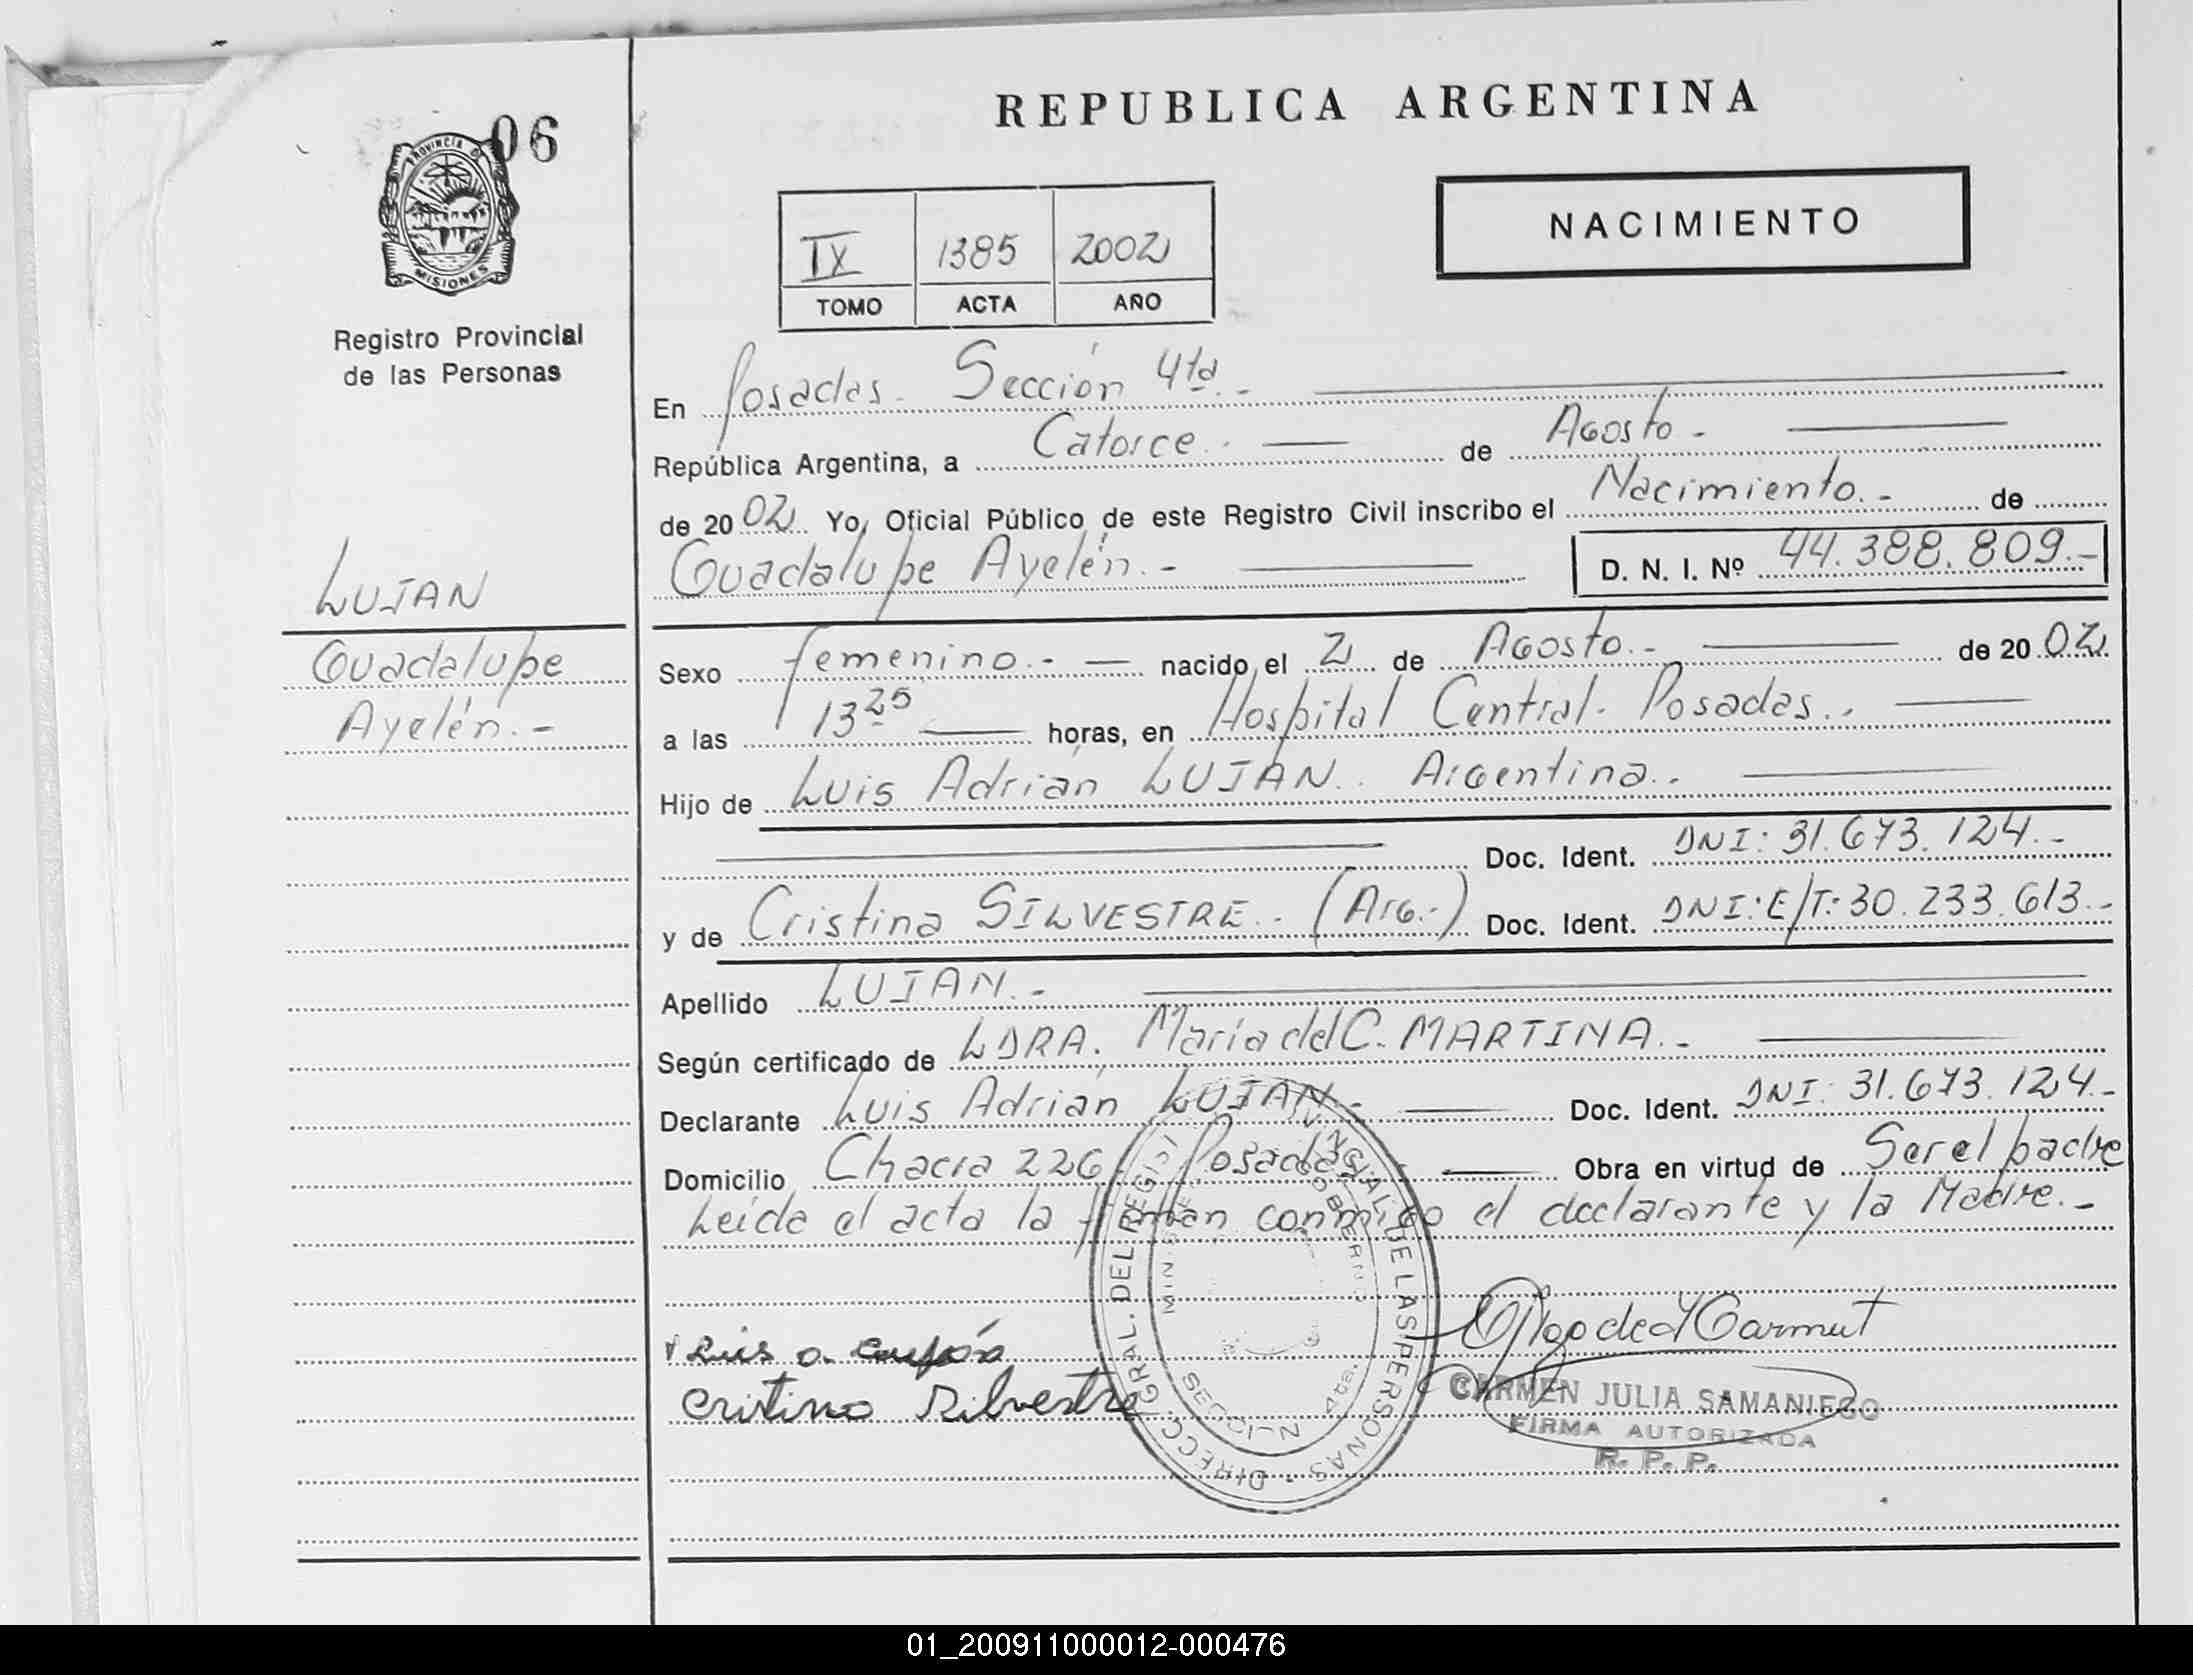 06
PROVINCIA DE
MISIONES
Registro Provincial
de las Personas
LUJAN
Guadalupe
Ayelén.-
REPUBLICA ARGENTINA
NACIMIENTO
IX 1385 2002
TOMO ACTA AÑO
En Posadas. Sección 4ta.-
República Argentina, a Catorce. de Agosto.-
de 2002 Yo, Oficial Público de este Registro Civil inscribo el Nacimiento.- de
Guadalupe Ayelén.- D. N. I. Nº 44.388.809.-
Sexo femenino.- nacido el 2 de Agosto.- de 2002
a las 13 25 horas, en Hospital Central. Posadas..
Hijo de Luis Adrián LUJAN. Argentina..
Doc. Ident. DNI: 31.673.124.-
y de Cristina SILVESTRE.. (Arg.-) Doc. Ident. DNI: E/T: 30.233.613.-
Apellido LUJAN.-
Según certificado de LDRA. María del C. MARTINA.-
Declarante Luis Adrián LUJAN.- Doc. Ident. DNI: 31.673.124.-
Domicilio Chacra 226. Posadas. Obra en virtud de Ser el padre
Leida el acta la firman conmigo el declarante y la Madre.-
Cristina Silvestre
DIRECC. GRAL. DEL REGIST. PROVINCIAL DE LAS PERSONAS
SECCION 4ta.
CARMEN JULIA SAMANIEGO
FIRMA AUTORIZADA
R. P. P.
01_200911000012-000476